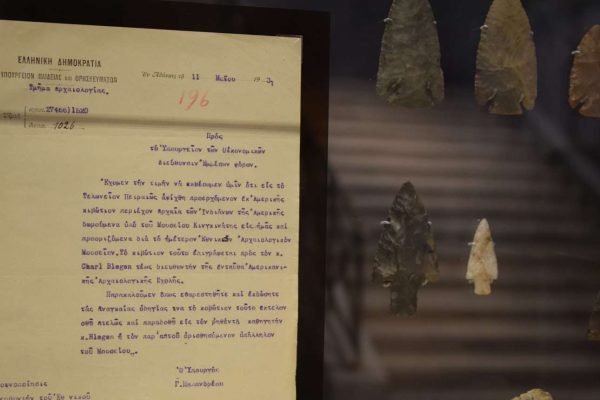 ΕΛΛΗΝΙΚΗ ΔΗΜΟΚΡΑΤΙΑ
ΥΠΟΥΡΓΕΙΟΝ ΠΑΙΔΕΙΑΣ ΚΑΙ ΘΡΗΣΚΕΥΜΑΤΩΝ
Τμῆμα ἀρχαιολογίας.
Ἐν Ἀθήναις τῇ 11 Μαΐου 193
196
1026
Πρὸς
τὸ Ὑπουργεῖον τῶν Οἰκονομικῶν
Διεύθυνσιν Ἐμμέσων φόρων.
Ἔχομεν τὴν τιμὴν νὰ ὑμῖν ὅτι εἰς τὸ
Τελωνεῖον Πειραιῶς ἀφίχθη προερχόμενον ἐκ Ἀμερικῆς
κιβώτιον περιέχον ἀρχαῖα τῶν Ἰνδιάνων τῆς Ἀμερικῆς
δωρούμενα ὑπὸ τοῦ Μουσείου Κινκινάτης εἰς ἡμᾶς καὶ
προοριζόμενα διὰ τὸ ἡμέτερον Ἐθνικὸν Ἀρχαιολογικὸν
Μουσεῖον. Τὸ κιβώτιον τοῦτο ἐπιγράφεται πρὸς τὸν κ.
Charl Blegen τέως διευθυντὴν τῆς ἐνταῦθα Ἀμερικανι-
κῆς Ἀρχαιολογικῆς Σχολῆς.
Παρακαλοῦμεν ὅπως εὐαρεστηθῆτε καὶ ἐκδώσητε
τὰς ἀναγκαίας ὁδηγίας ἵνα τὸ κιβώτιον τοῦτο ἐκτελων
σθῇ ἀτελῶς καὶ παραδοθῇ εἰς τὸν ῥηθέντα καθηγητὴν
κ. Blegen ἢ τὸν παρ' αὐτοῦ ὁρισθησόμενον ὑπάλληλον
τοῦ Μουσείου.
Ὁ Ὑπουργὸς
Γ. Παπανδρέου